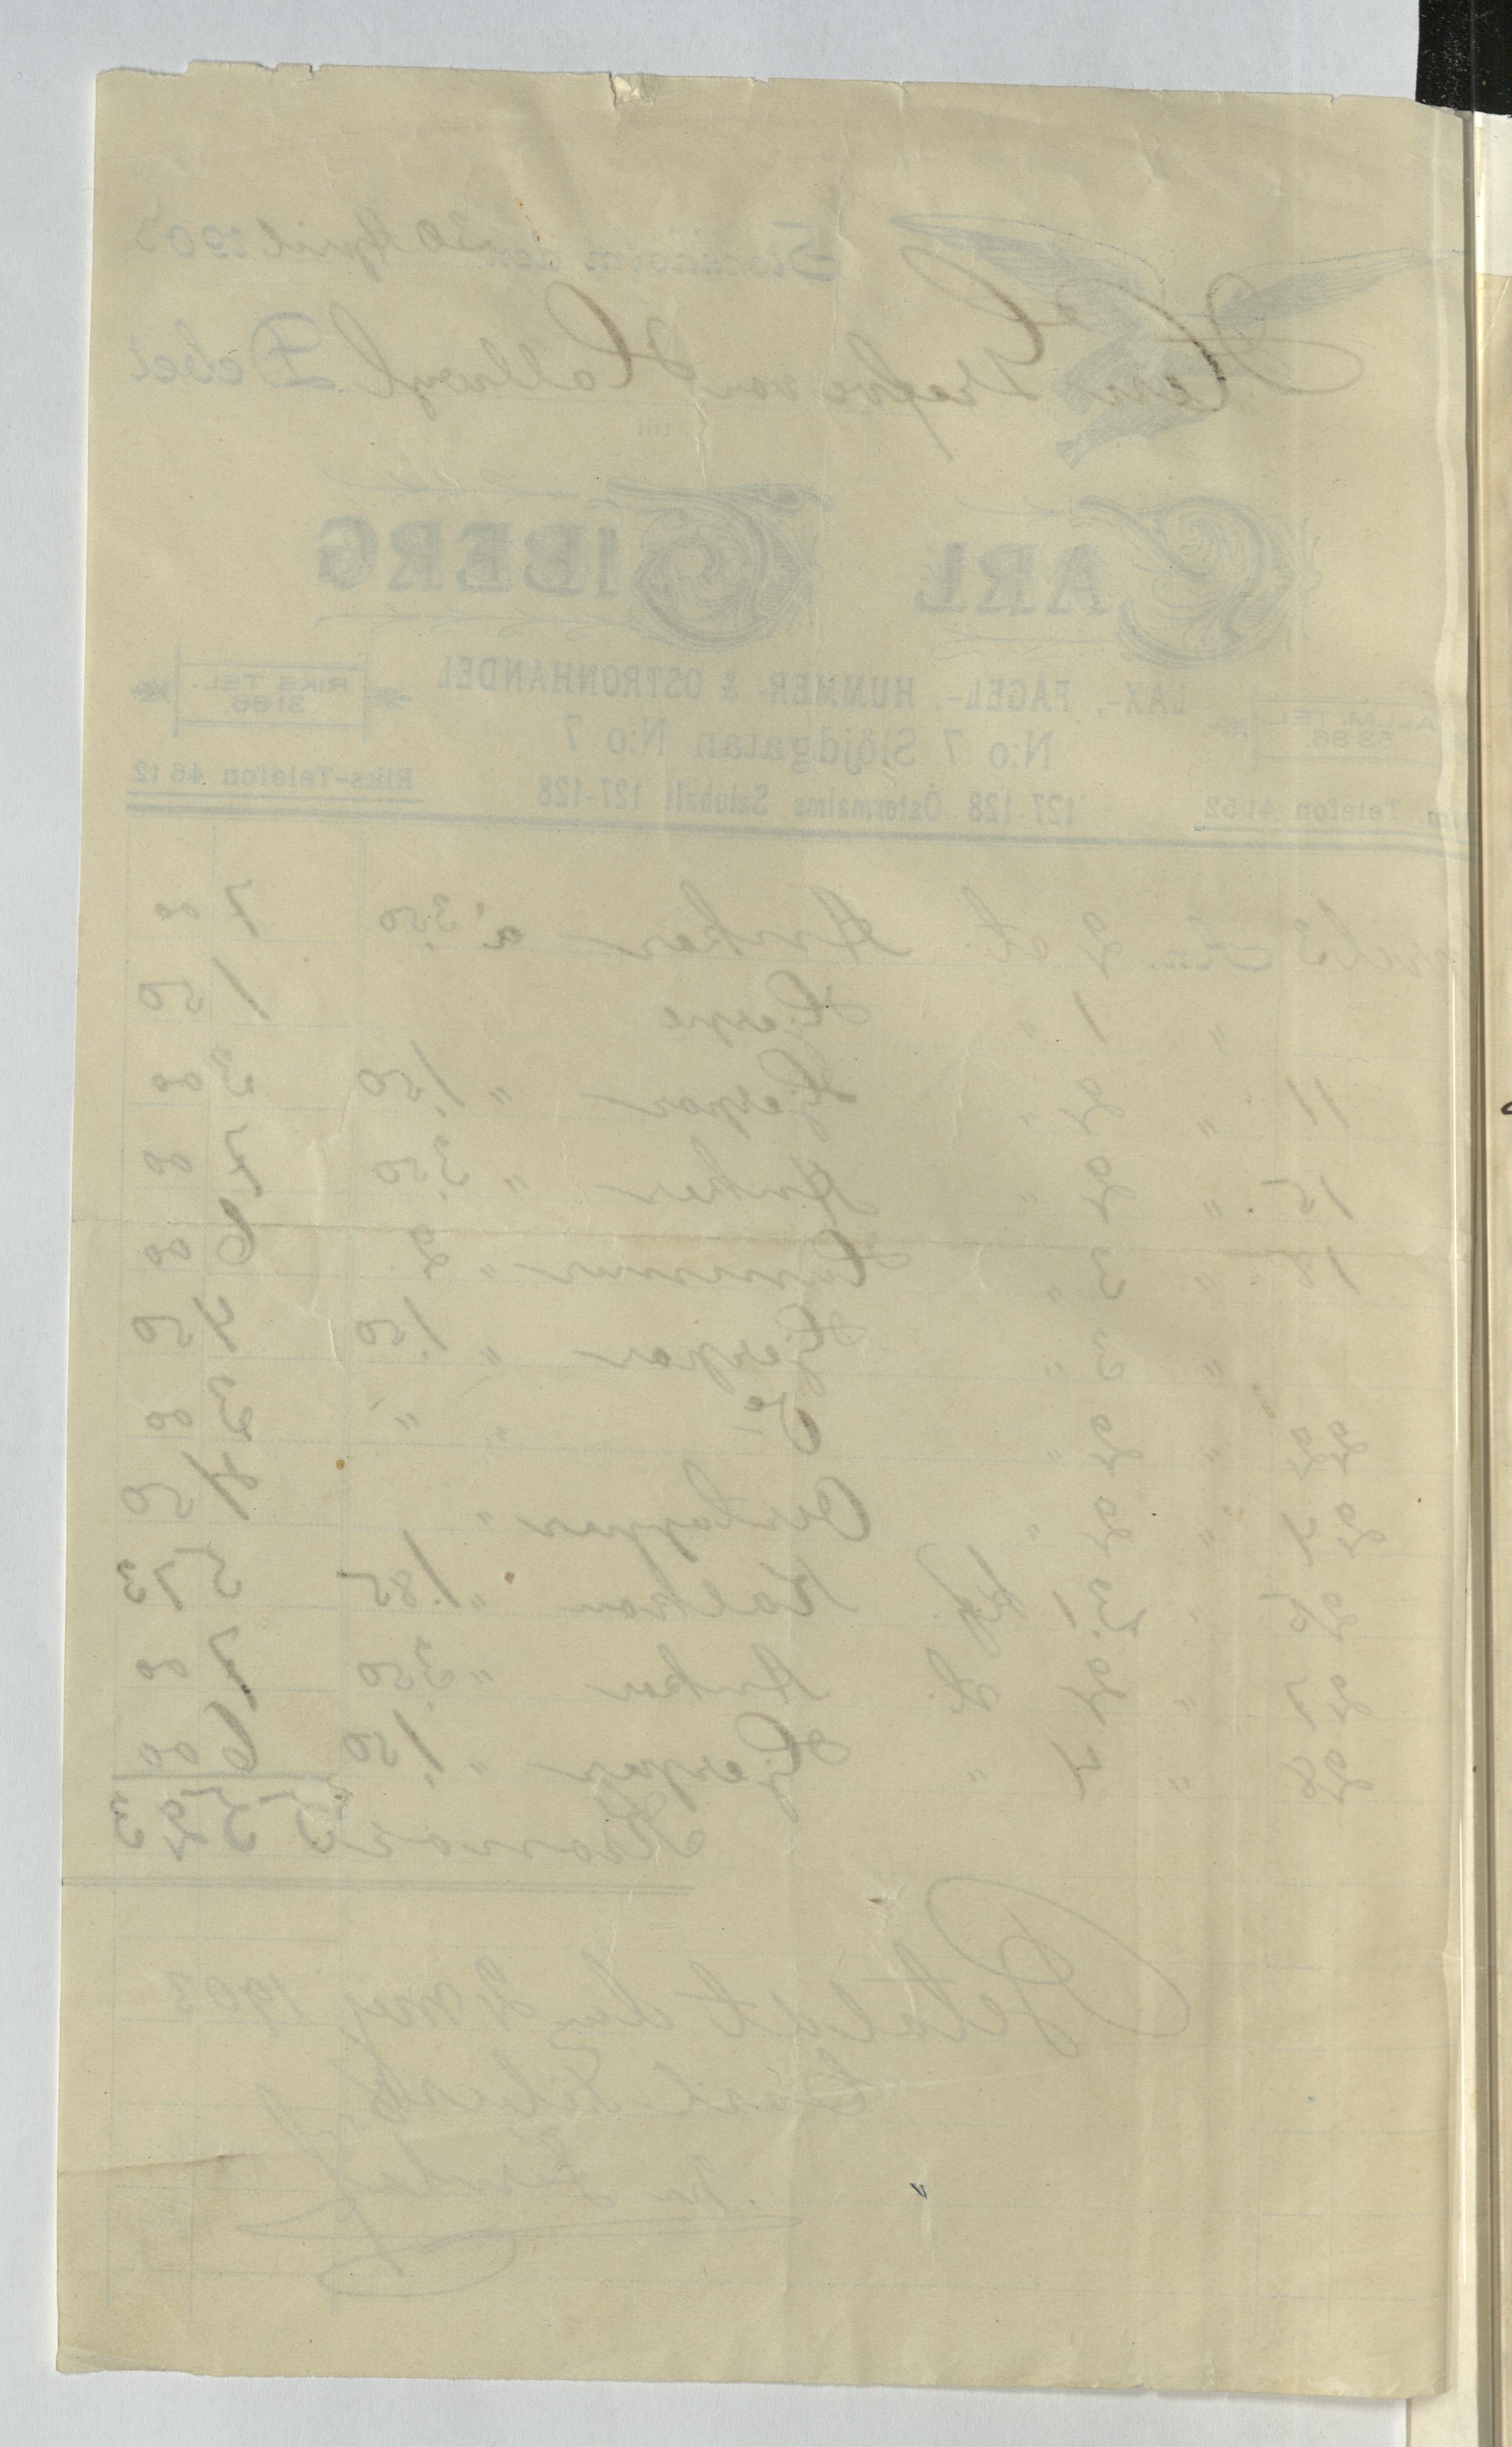 Stockholm den 30 April 1903
Herr Grefve von Hallwyl Debet
till
CARL TIBERG
LAX-, FÅGEL-, HUMMER- & OSTRONHANDEL
ALLM. TEL. RIKS TEL. 3166.
N:o 7 Slöjdgatan N:o 7
Telefon 41 52 127-128 Östermalms Saluhall 127-128 Riks-Telefon 46 12
2 st. Ankor à 3,50 7 00
" 1 " Hjerpe 1 50
11 " 2 " Hjerpar " 1,50 3 00
15 " 2 " Ankor " 3,50 7 00
18 " 3 " Hummer " 2 6 00
" 3 " Hjerpar " 1,50 4 50
22 " 2 " Do " " 3 00
24 " 2 " Orrhöppor " 4 50
25 " 3,1 kg Kalkon " 1,85 5 73
27 " 2 st. Ankor " 3,50 7 00
28 " 4 " Hjerpar " 1,50 6 00
Kronor 55 23
Betaldt den 2 Maj 1903
Carl Tiberg